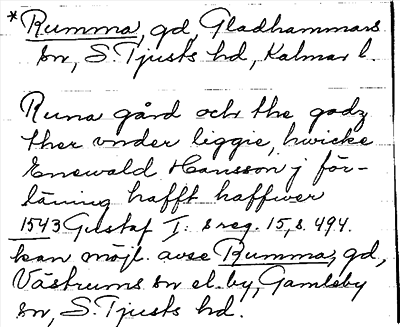 *Rumma, gd, Gladhammars
sn, S. Tjusts hd, Kalmar l.
Runa gård och the godz
ther vnder liggie, hwicke
Enewald Hansson j för-
läning hafft haffwer
1543 Gustaf I:s reg. 15, s. 494.
kan möjl. avse Rumma, gd,
Västrums sn el. by, Gamleby
sn, S. Tjusts hd.